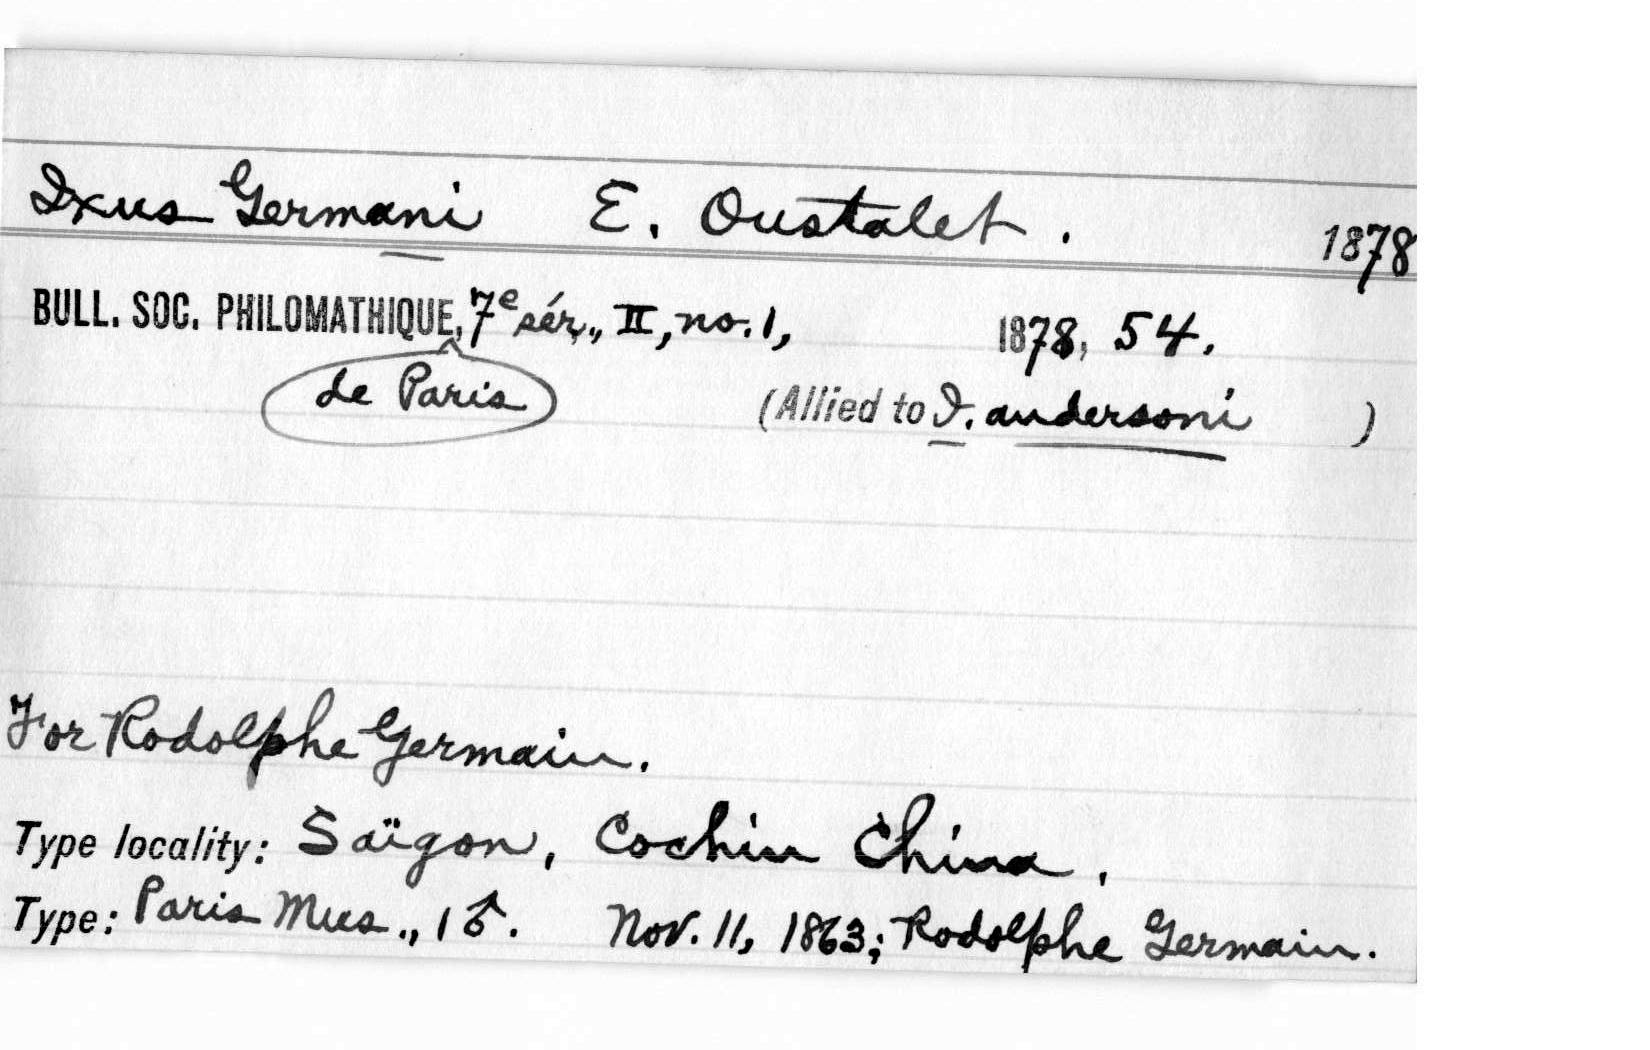 Ixus Germani E. Oustalet. 1878
BULL. SOC. PHILOMATHIQUE, 7e sér., II, no. 1, 1878, 54.
de Paris (Allied to I. andersoni )
For Rodolphe Germain.
Type locality: Saïgon, Cochin China.
Type: Paris Mus., 1 ♂. Nov. 11, 1863; Rodolphe Germain.